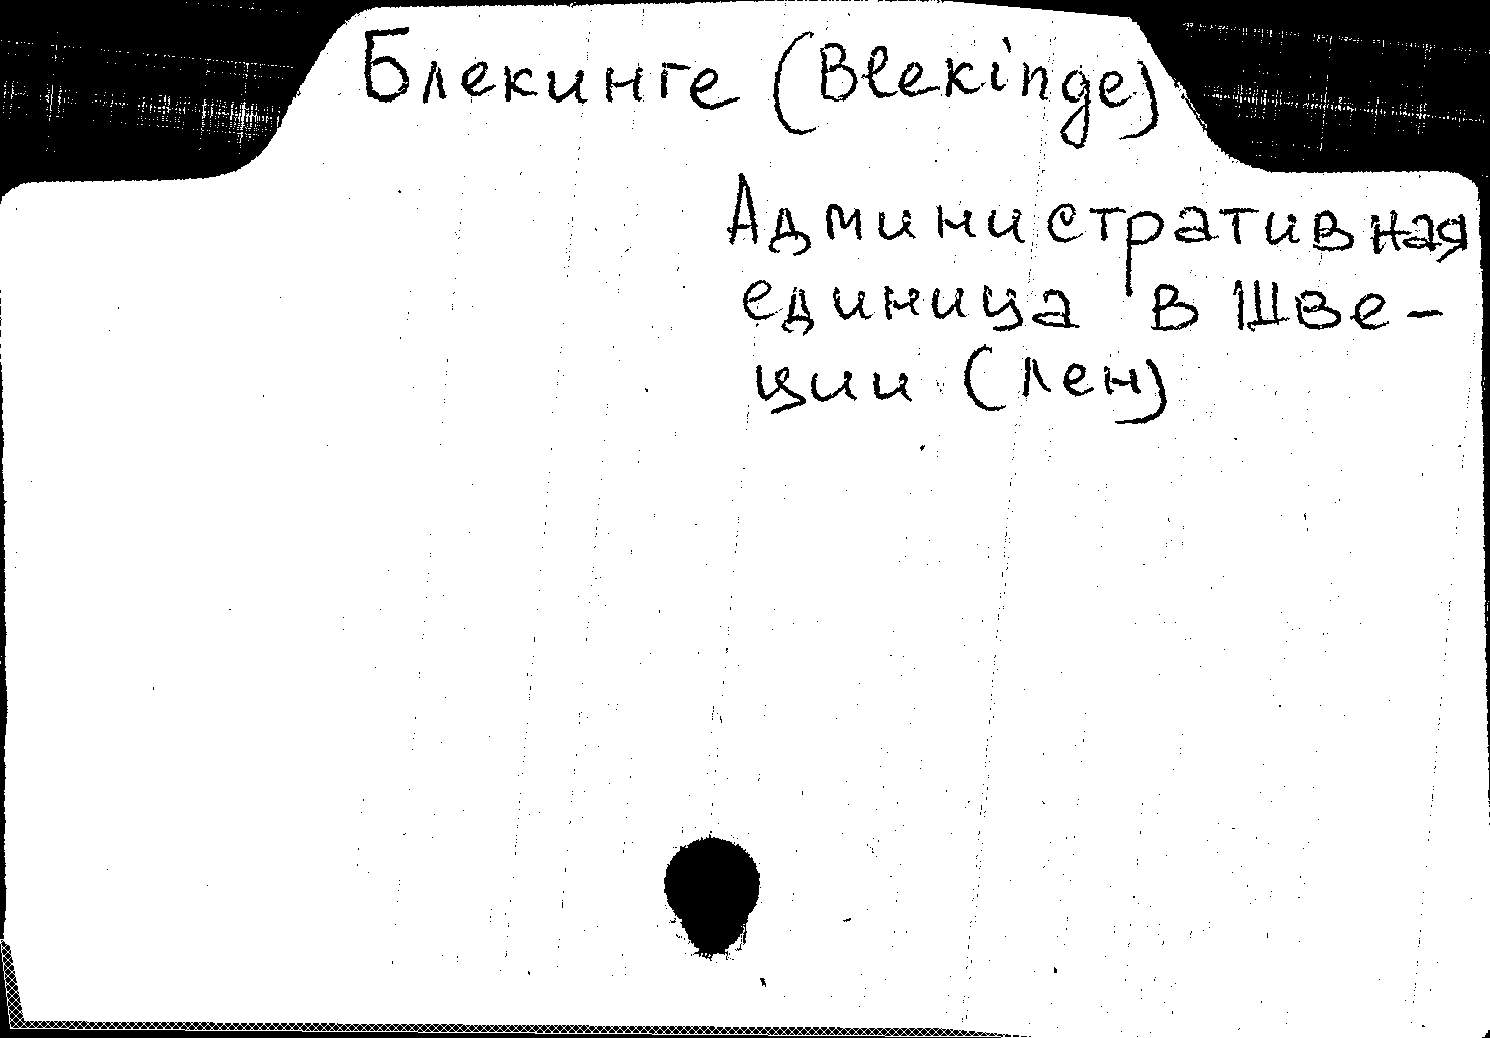 Блекинге (Blekinge)
Административная
единица в Шве-
ции (лен)